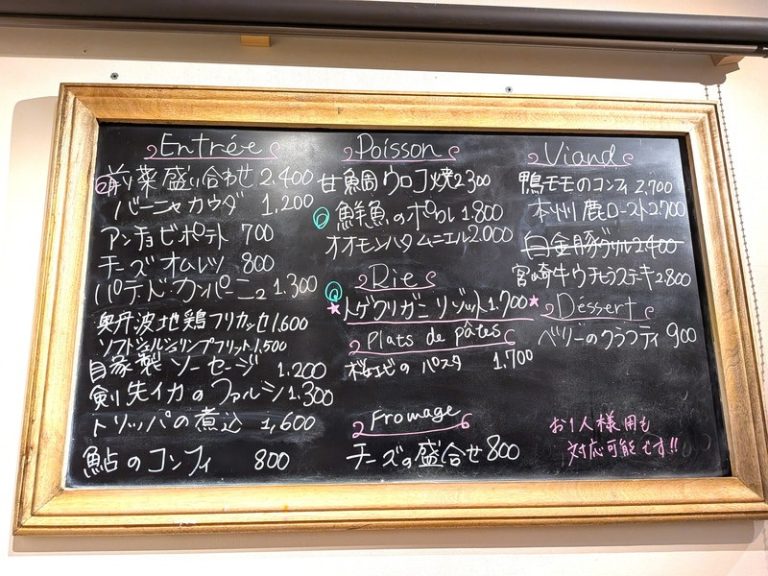 Entrée
前菜盛り合わせ 2.400
バーニャカウダ 1.200
アンチョビポテト 700
チーズオムレツ 800
パテ・ド・カンパーニュ 1.300
奥丹波地鶏フリカッセ 1.600
ソフトシェルシュリンプフリット 1.500
自家製ソーセージ 1.200
剣先イカのファルシ 1.300
トリッパの煮込 1,600
鮎のコンフィ 800
Poisson
甘鯛ウロコ焼 2300
鮮魚のポワレ 1.800
オオモンハタムニエル 2.000
Rie
トゲクリガニリゾット 1.700
Plats de pâtes
桜エビのパスタ 1.700
Fromage
チーズの盛合せ 800
Viand
鴨モモのコンフィ 2,700
本州鹿ロースト 2.700
白金豚グリル 2.400
宮崎牛ウチヒラステーキ 2.800
Déssert
ベリーのクラフティ 900
お1人様用も
対応可能です!!